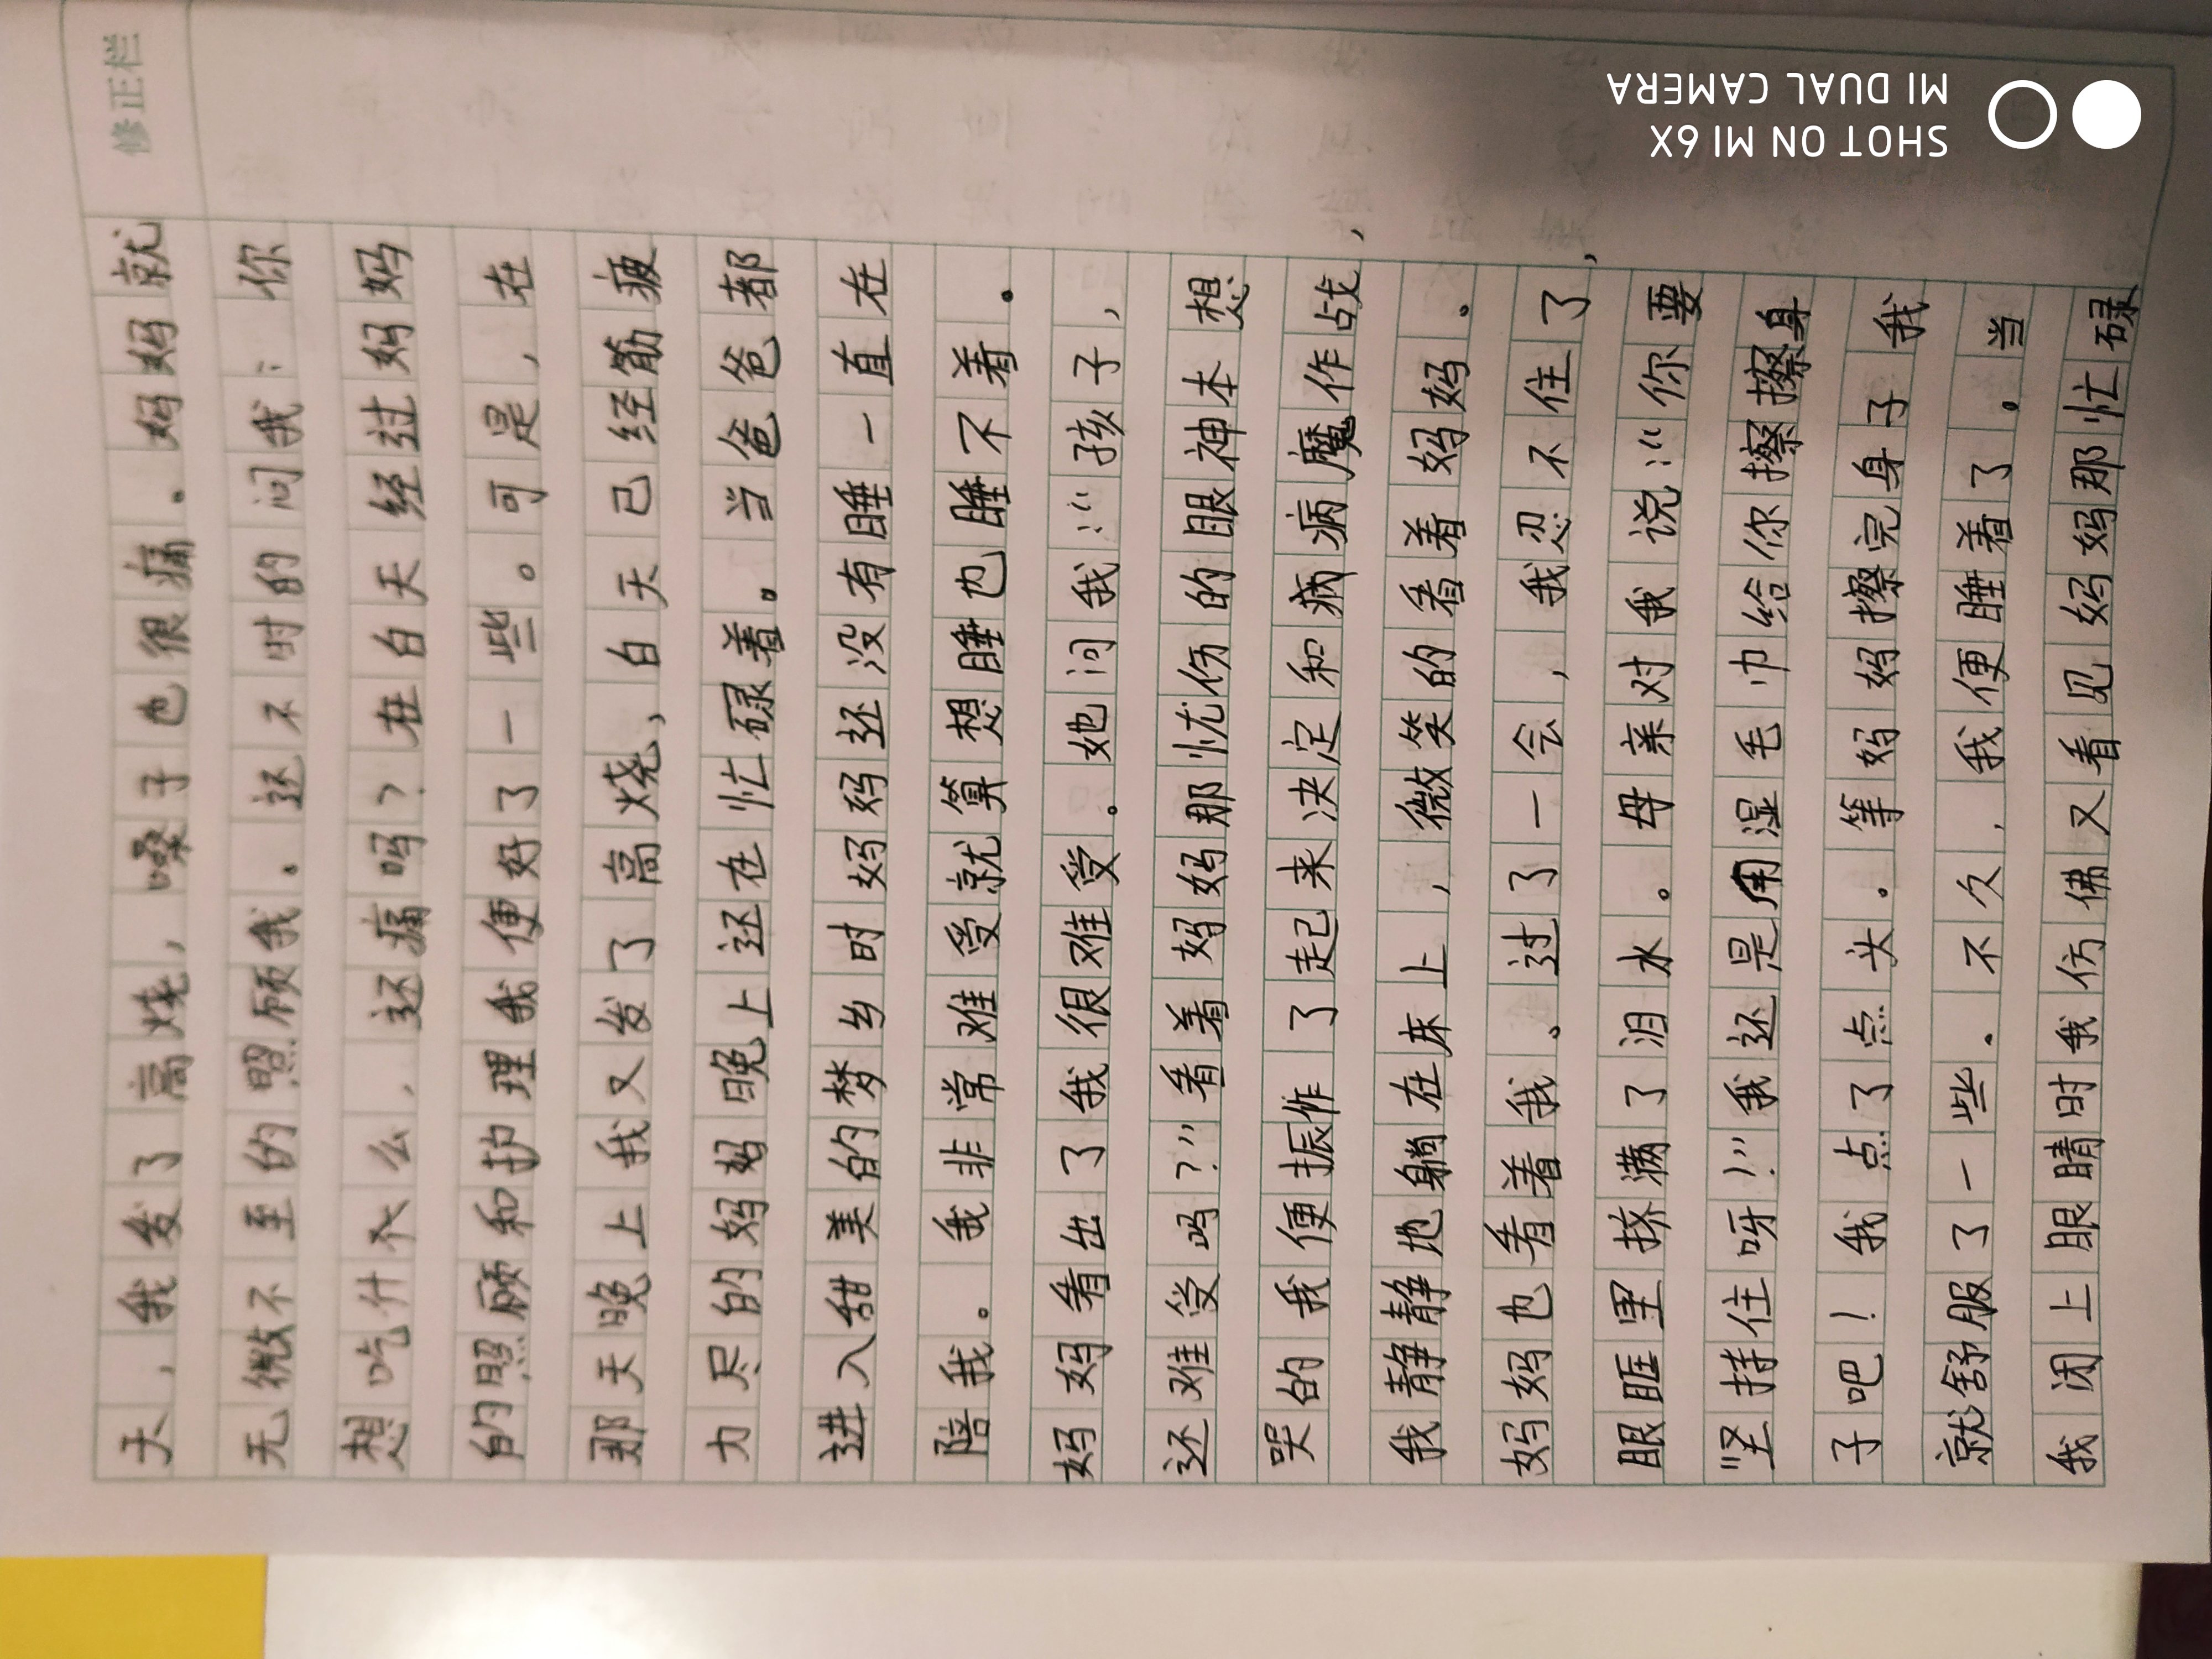 修正栏
天，我发了高烧，嗓子也很痛。妈妈就
无微不至的照顾我。还不时的问我：你
想吃什么，还痛吗？在白天经过妈妈
的照顾和护理我便好了一些。可是，在
那天晚上我又发了高烧，白天已经筋疲
力尽的妈妈晚上还在忙碌着。当爸爸都
进入甜美的梦乡时妈妈还没有睡一直在
陪我。我非常难受就算想睡也睡不着。
妈妈看出了我很难受。她问我：“孩子，
还难受吗？”看着妈妈那忧伤的眼神本想
哭的我便振作了起来决定和病病魔作战，
我静静地躺在床上，微笑的看着妈妈。
妈妈也看着我。过了一会，我忍不住了，
眼眶里挤满了泪水。母亲对我说：“你要
“坚持住呀！”我还是用湿毛巾给你擦擦身
子吧！我点了点头。等妈妈擦完身子我
就舒服了一些。不久，我便睡着了。当
我闭上眼睛时我仿佛又看见妈妈那忙碌
SHOT ON MI 6X
MI DUAL CAMERA